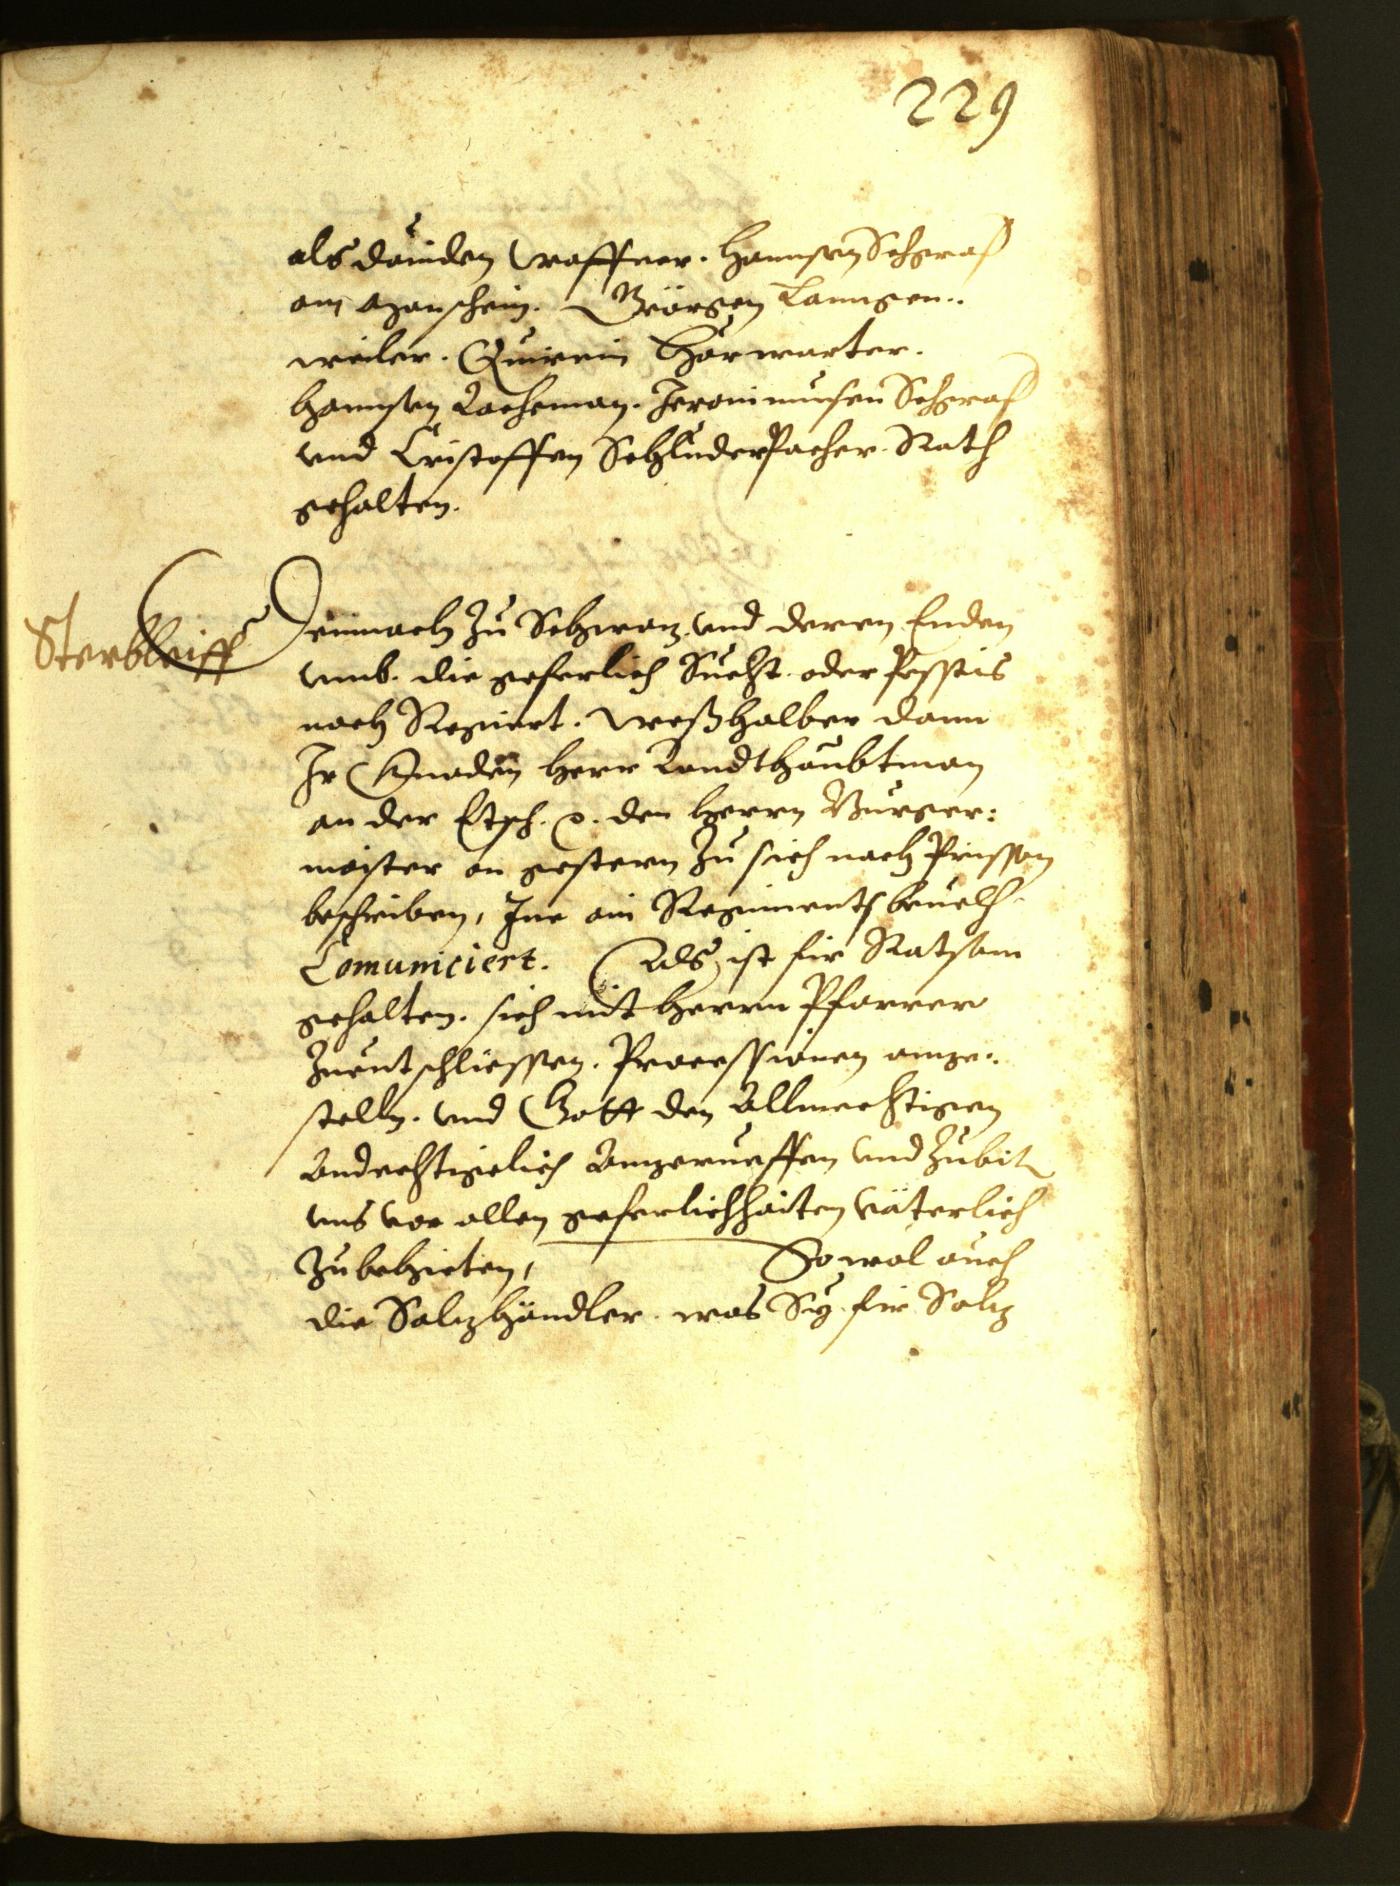 229
als dauiden Waffner. Hannsen Schgraf
am Geörgen Lanngen:
weiler. Quirein Hörwarter.
Hannsen Lacheman. Jeronimusen Schgraf
vnd Cristoffen Schluderpacher Rath
gehalten.
Sterbleiff
Demnach zu Schwaz vnd deren Enden
vmb. die geferlich Sucht oder Pesstis
noch Regiert. Weßhalber dann
Ir Gnaden Herr Landthaubtman
an der Etsch. den Herrn Burger:
maister an gestern zu sich nach Prissan
beschriben, Ime ain Regiments beuelh
Comuniciert. Als ist fir Ratsam
gehalten. sich mit Herrn Pfarrer
zuentschliessen. Processionen anze:
stelln. vnd Gott den Allmechtigen
Andechtigelich Anzerueffen vnd zubit
vns vor allen geferlichhaiten väterlich
zubehieten, So wol auch
die Salzhändler. was Sy fir Salz